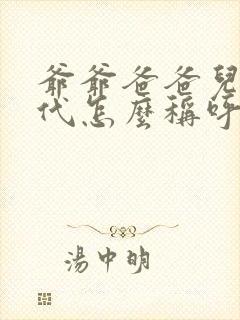 爺爺爸爸兒
代怎麼稱呼
湯中明